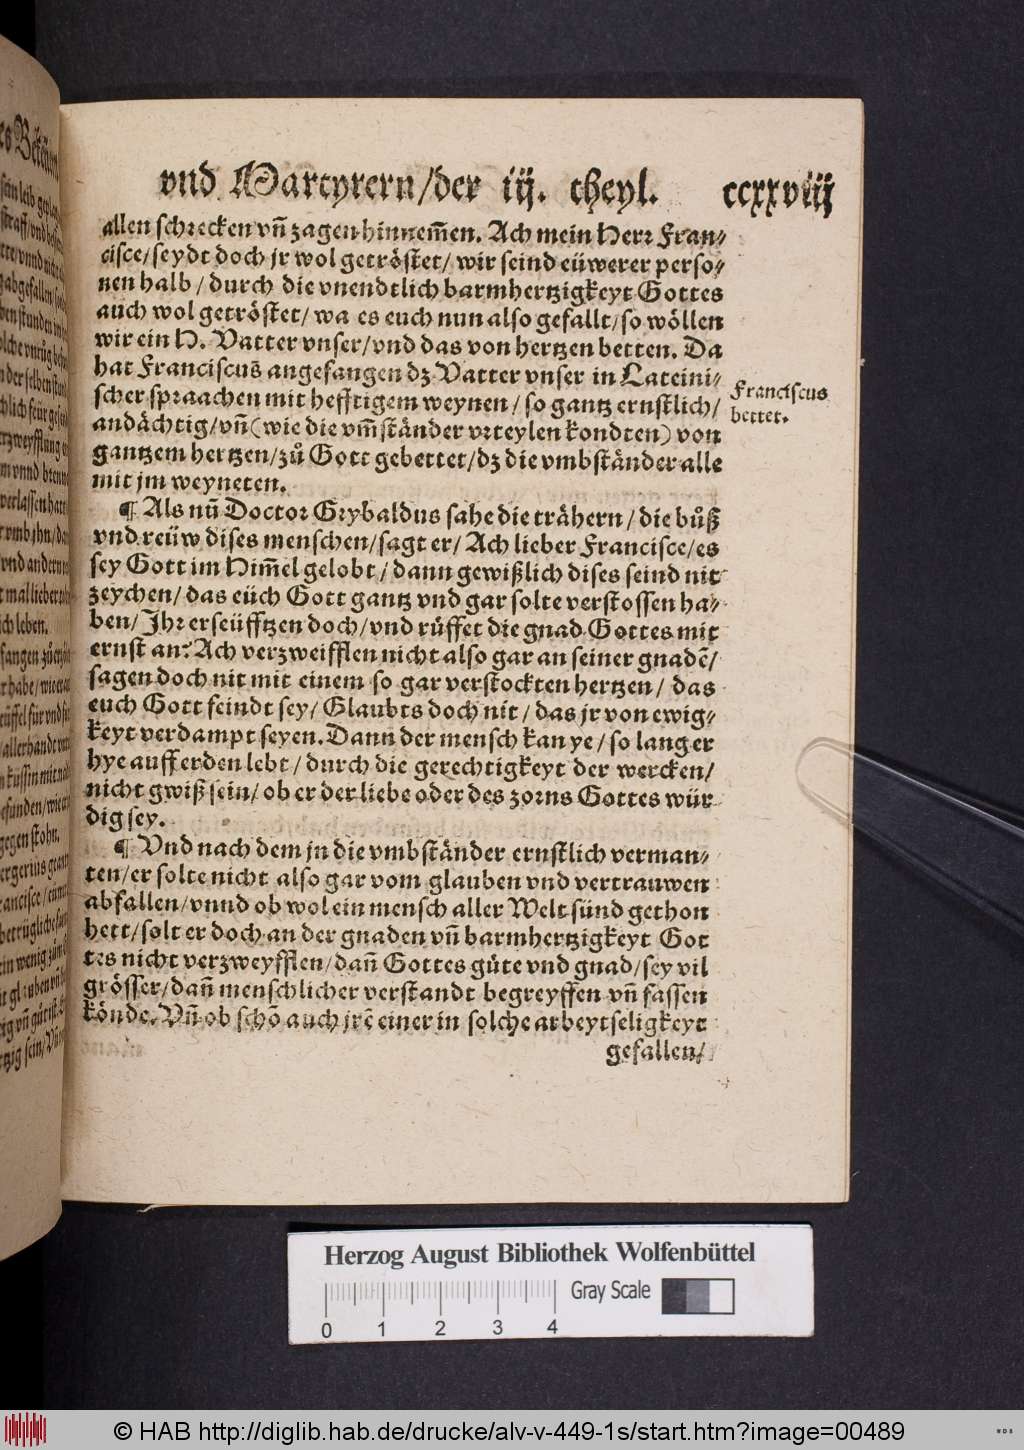 vnd Martyrern/der iij. theyl. ccxxviij
allen schrecken vñ zagen hinnem̃en. Ach mein Herr Fran⸗
cisce/seydt doch jr wol getröstet/ wir seind eüwerer perso⸗
nen halb / durch die vnendtlich barmhertzigkeyt Gottes
auch wol getröstet/ wa es euch nun also gefallt/so wöllen
wir ein H. Vatter vnser/vnd das von hertzen betten. Da
hat Franciscus angefangen dz Vatter vnser in Lateini⸗
scher spraachen mit hefftigem weynen / so gantz ernstlich/
andächtig/vñ (wie die vm̃ständer vrteylen kondten) von
gantzem hertzen/zů Gott gebettet/dz die vmbständer alle
mit jm weyneten.
Franciscus
bettet.
¶ Als nũ Doctor Grybaldus sahe die trähern / die bůß
vnd reüw dises menschen/sagt er/ Ach lieber Francisce/es
sey Gott im Him̃el gelobt / dann gewißlich dises seind nit
zeychen/ das eüch Gott gantz vnd gar solte verstossen ha⸗
ben/ Jhr erseüfftzen doch/vnd rüffet die gnad Gottes mit
ernst an: Ach verzweifflen nicht also gar an seiner gnadē/
sagen doch nit mit einem so gar verstockten hertzen/ das
euch Gott feindt sey/ Glaubts doch nit / das jr von ewig⸗
keyt verdampt seyen. Dann der mensch kan ye / so lang er
hye auff erden lebt / durch die gerechtigkeyt der wercken/
nicht gwiß sein/ ob er der liebe oder des zorns Gottes wür
dig sey.
¶ Vnd nach dem jn die vmbständer ernstlich verman⸗
ten/er solte nicht also gar vom glauben vnd vertrauwen
abfallen/vnnd ob wol ein mensch aller Welt sünd gethon
hett/solt er doch an der gnaden vñ barmhertzigkeyt Got
tes nicht verzweyfflen/dañ Gottes güte vnd gnad/sey vil
grösser/dañ menschlicher verstandt begreyffen vñ fassen
könde. Vñ ob schō auch jrē einer in solche arbeytseligkeyt
gefallen/
Herzog August Bibliothek Wolfenbüttel
Gray Scale
0 1 2 3 4
© HAB http://diglib.hab.de/drucke/alv-v-449-1s/start.htm?image=00489